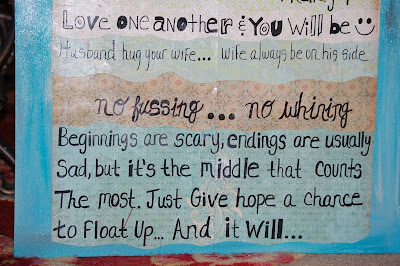 Love one another & You Will be
Husband hug your wife... wife always be on his side
no fussing... no whining
Beginnings are scary, endings are usually
Sad, but it's the middle that counts
The most. Just Give hope a chance
to Float Up... And it Will...